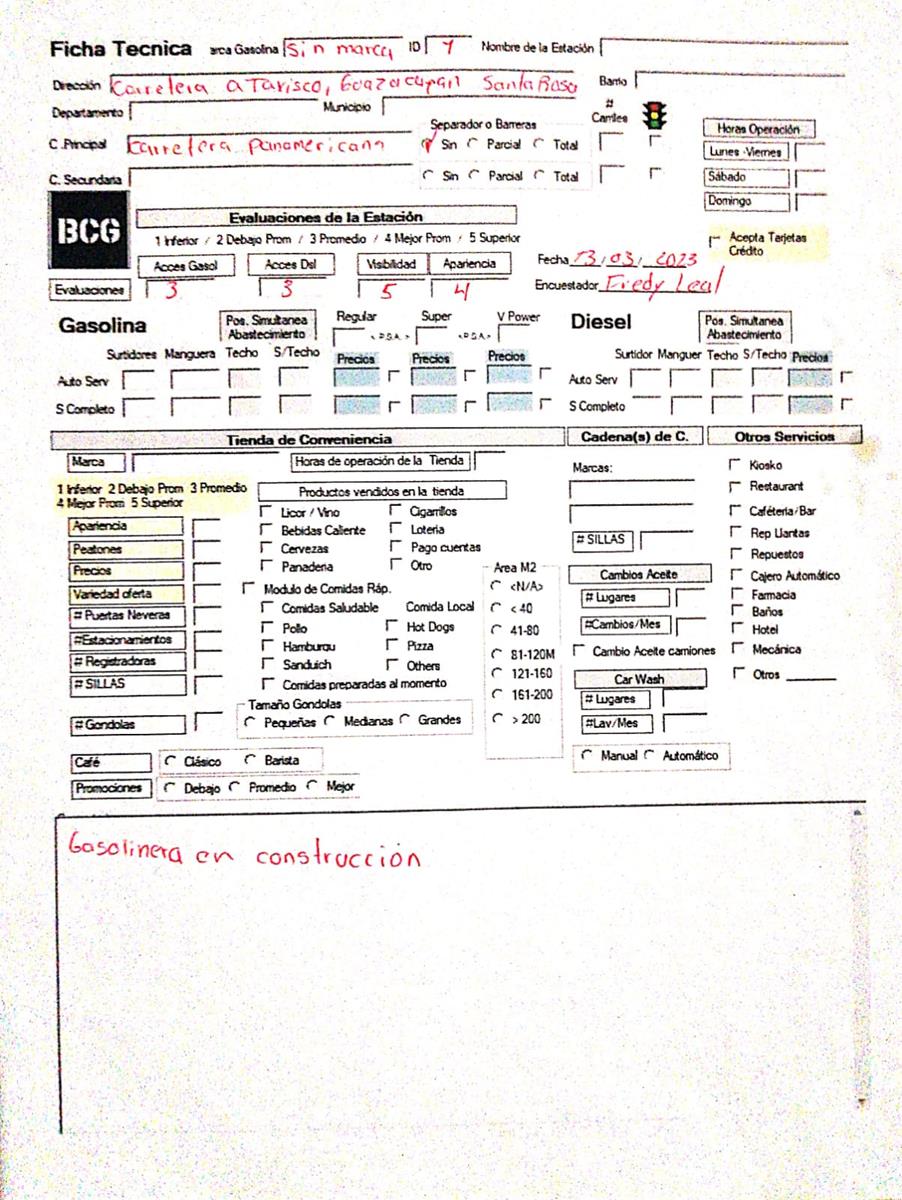 Ficha Tecnica arca Gasolina Sin marca ID Nombre de la Estación
Dirección Carretera a Tarisco, Guazacapan Santa Rosa Barrio
Departamento Municipio # Carriles
Separador o Barreras
C .Principal Carretera Panamericana Sin Parcial Total
C. Secundaria Sin Parcial Total
Horas Operación
Lunes -Viernes
Sábado
Domingo
BCG
Evaluaciones de la Estación
1 Inferior / 2 Debajo Prom / 3 Promedio / 4 Mejor Prom / 5 Superior
Acepta Tarjetas Crédito
Acces Gasol Acces Dsl Visibilidad Apariencia
Fecha 13, 03, 2023
Evaluaciones 3 3 5 4
Encuestador Fredy Leal
Gasolina Pos. Simultanea Abastecimiento Regular Super V Power
<.P.S.A..> <.P.S.A..>
Surtidores Manguera Techo S/Techo Precios Precios Precios
Auto Serv
S Completo
Diesel Pos. Simultanea Abastecimiento
Surtidor Manguer Techo S/Techo Precios
Auto Serv
S Completo
Tienda de Conveniencia
Marca Horas de operación de la Tienda
1 Inferior 2 Debajo Prom 3 Promedio
4 Mejor Prom 5 Superior
Apariencia
Peatones
Precios
Variedad oferta
# Puertas Neveras
#Estacionamientos
# Registradoras
# SILLAS
# Gondolas
Productos vendidos en la tienda
Licor / Vino Cigarrillos
Bebidas Caliente Loteria
Cervezas Pago cuentas
Panaderia Otro
Modulo de Comidas Ráp.
Comidas Saludable Comida Local
Pollo Hot Dogs
Hamburgu Pizza
Sanduich Others
Comidas preparadas al momento
Tamaño Gondolas
Pequeñas Medianas Grandes
Area M2
<N/A>
< 40
41-80
81-120M
121-160
161-200
> 200
Café Clásico Barista
Promociones Debajo Promedio Mejor
Cadena(s) de C.
Marcas:
# SILLAS
Cambios Aceite
# Lugares
#Cambios/Mes
Cambio Aceite camiones
Car Wash
# Lugares
#Lav/Mes
Manual Automático
Otros Servicios
Kiosko
Restaurant
Caféteria/Bar
Rep Llantas
Repuestos
Cajero Automático
Farmacia
Baños
Hotel
Mecánica
Otros
Gasolinera en construcción